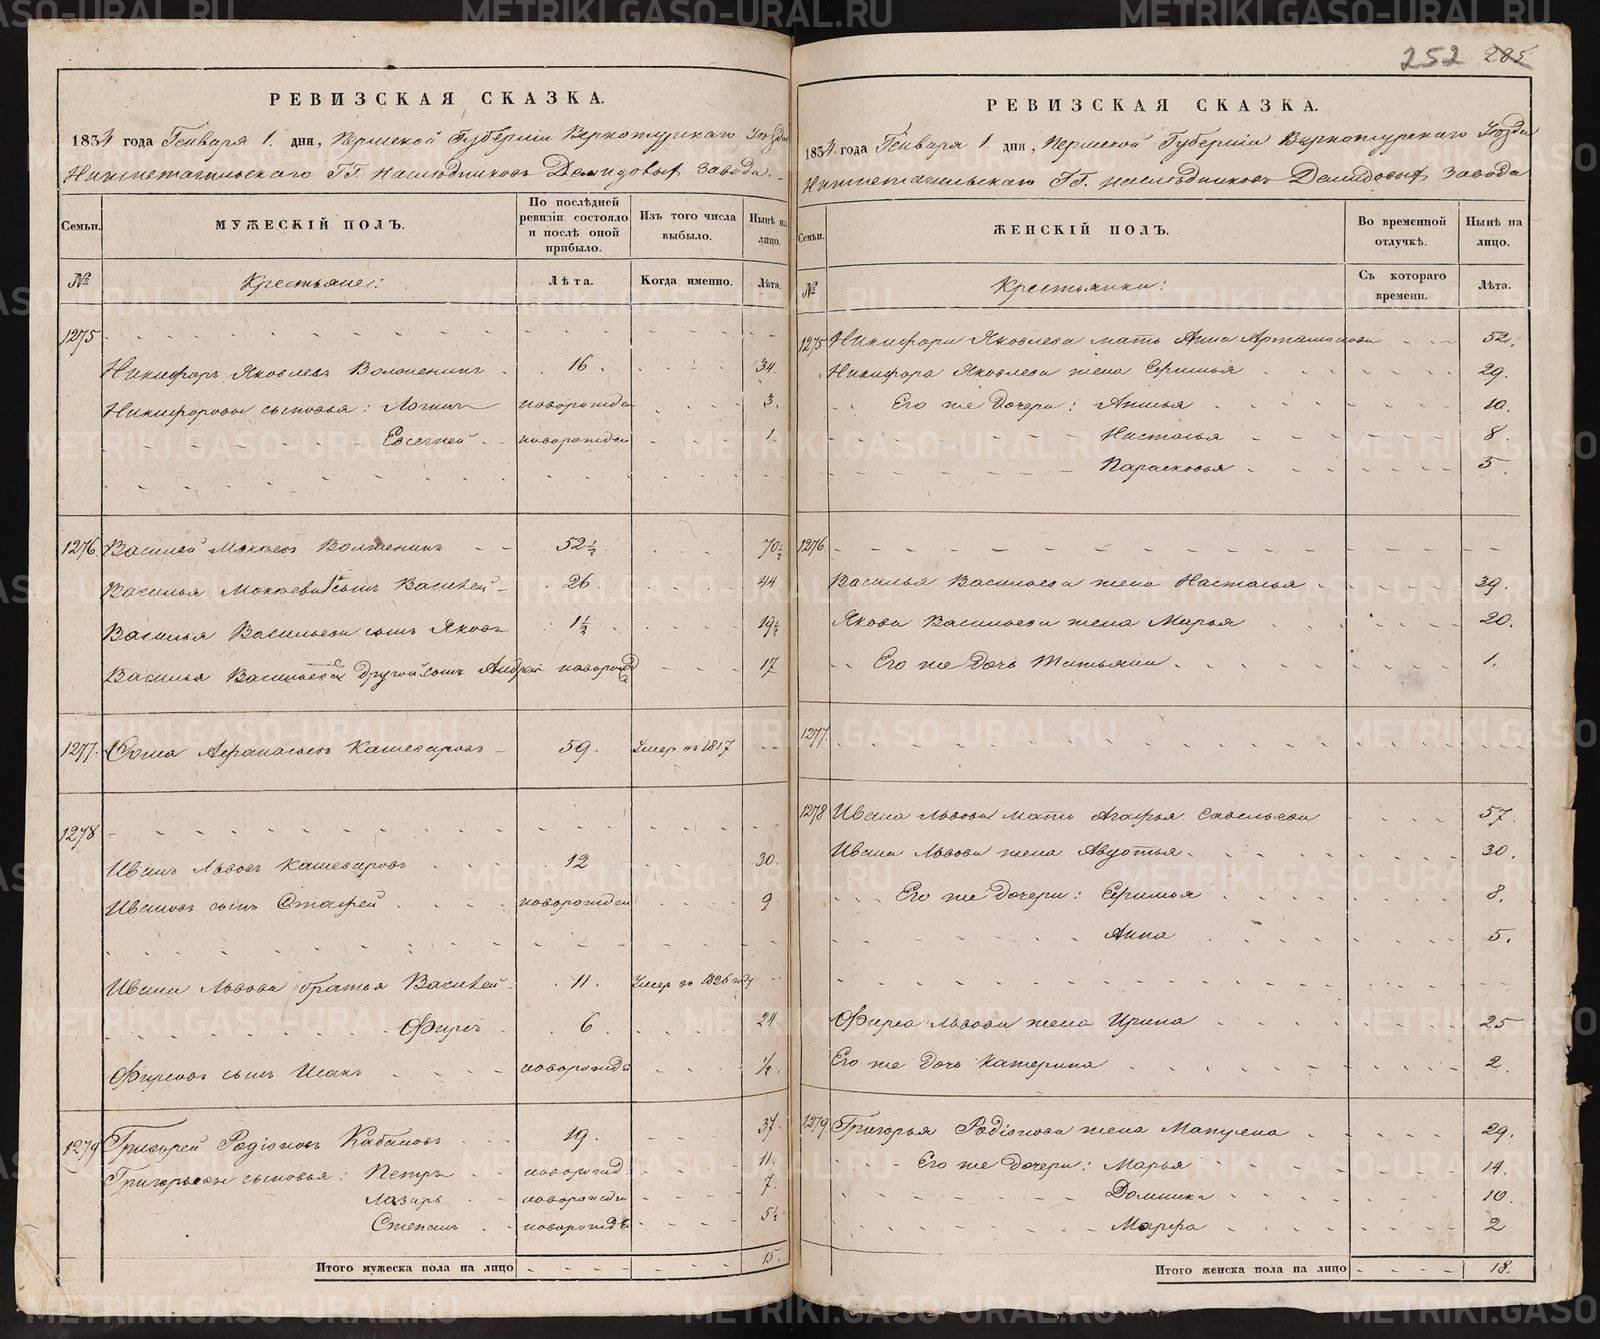 252 285
РЕВИЗСКАЯ СКАЗКА.
1834 года Генваря 1. дня, Пермской Губерніи Верхотурскаго Уѣзда
Нижнетагильскаго ГГ. Наслѣдниковъ Демидовыхъ завода.
Семьи. МУЖЕСКІЙ ПОЛЪ. По послѣдней ревизіи состояло и послѣ оной прибыло. Изъ того числа выбыло. Нынѣ на лицо.
№ Крестьяне: Лѣта. Когда именно. Лѣта.
1275
Никифоръ Яковлевъ Волженинъ 16. 34.
Никифоровы сыновья: Логинъ новорожден 3.
Евсегней новорожден 1.
1276 Василей Мокѣевъ Волженинъ 52½. 70½
Василья Мокѣева сынъ Василей 26. 44.
Василья Васильева сынъ Яковъ 1½ 19½
Василья Васильева другой сынъ Андрей новорожд 17
1277. Фома Афанасьевъ Кашеваровъ 59. Умер въ 1817
1278
Иванъ Львовъ Кашеваровъ 12 30.
Ивановъ сынъ Стафей новорожден 9
Ивана Львова братья Василей 11. Умер въ 1826 году
Фирсъ 6. 24
Фирсовъ сынъ Исакъ новорожд ½.
1279 Григорей Родіоновъ Кабановъ 19. 37.
Григорьевы сыновья: Петръ новорожд 11.
Лазарь новорожден 7.
Степанъ новорожде 5½
Итого мужеска пола на лицо 15.
РЕВИЗСКАЯ СКАЗКА.
1834 года Генваря 1. дня, Пермской Губерніи Верхотурскаго Уѣзда
Нижнетагильскаго ГГ. Наслѣдниковъ Демидовыхъ завода
Семьи. ЖЕНСКІЙ ПОЛЪ. Во временной отлучкѣ. Нынѣ на лицо.
№ Крестьянки: Съ котораго времени. Лѣта.
1275 Никифора Яковлева мать Анна Артамонова 52.
Никифора Яковлева жена Ефимья 29.
Его же дочери: Анисья 10.
Настасья 8.
Парасковья 5.
1276
Василья Васильева жена Настасья 39.
Якова Васильева жена Марья 20.
Его же дочь Татьяна 1.
1277.
1278 Ивана Львова мать Агафья Савельева 57.
Ивана Львова жена Авдотья 30.
Его же дочери: Ефимья 8.
Анна 5.
Фирса Львова жена Ирина 25
Его же дочь Катерина 2.
1279 Григорья Родіонова жена Матрена 29.
Его же дочери: Марья 14.
Домника 10.
Марфа 2
Итого женска пола на лицо 18.
METRIKI.GASO-URAL.RU